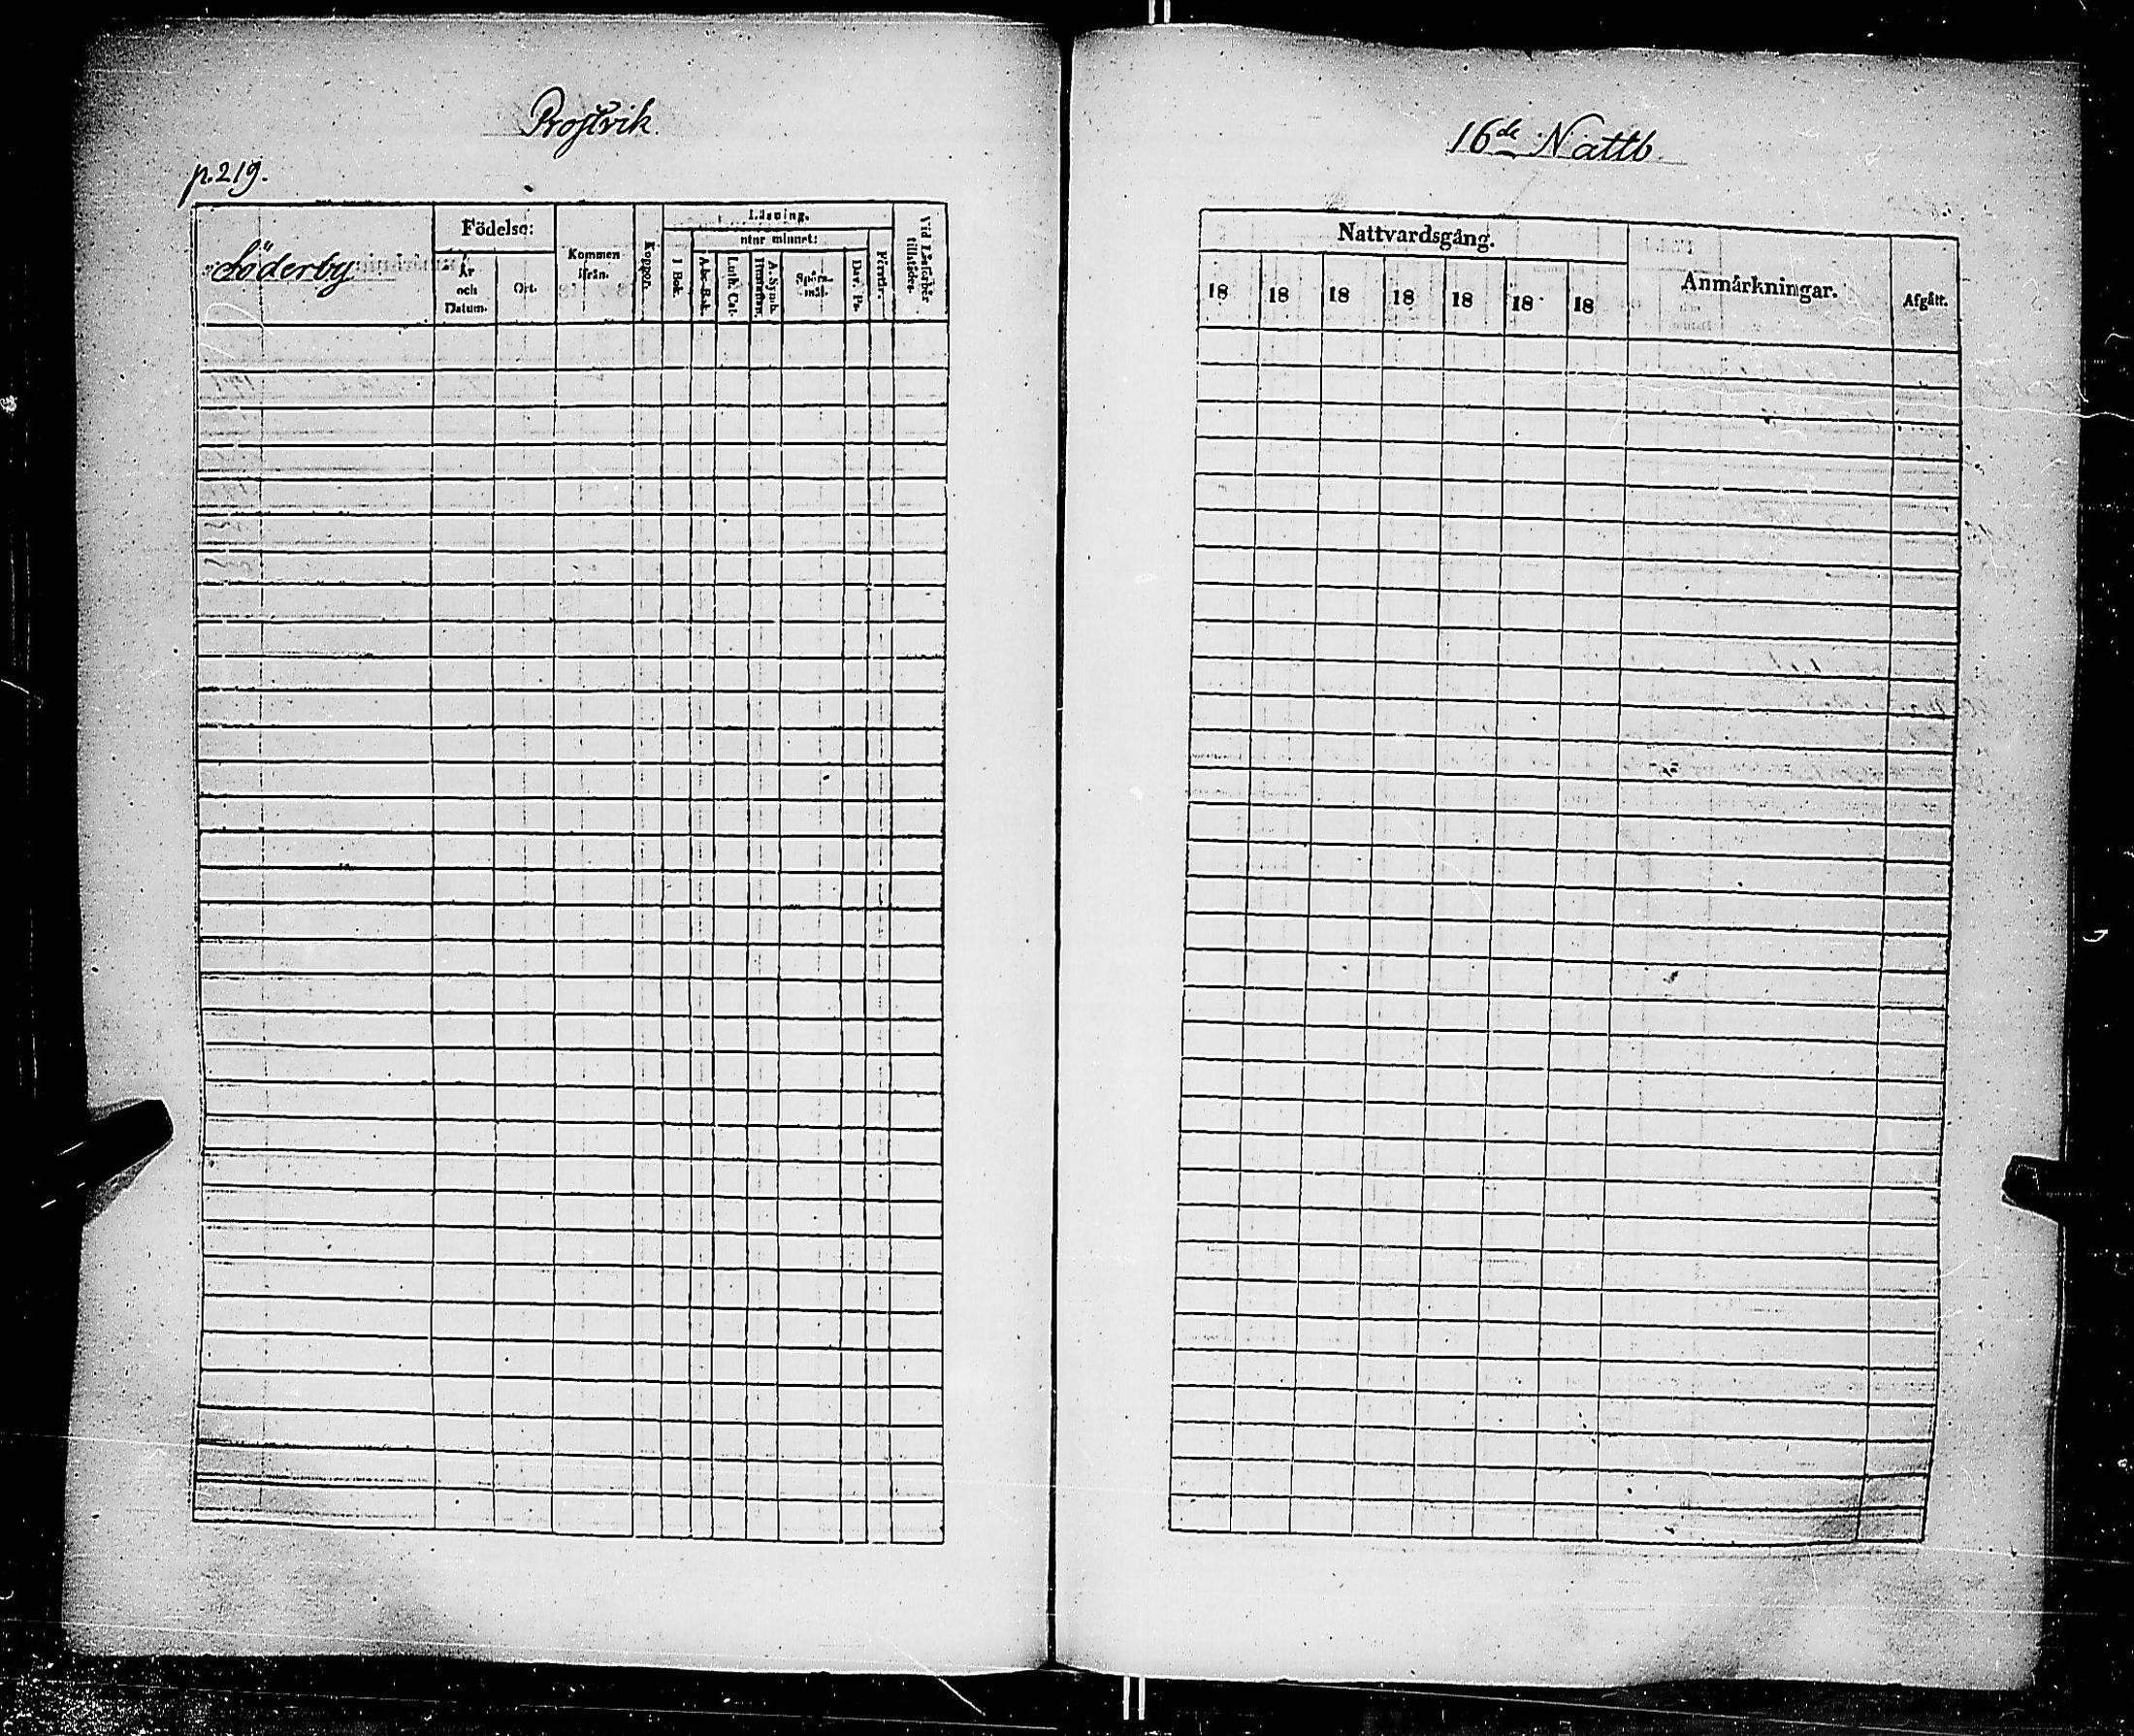 Prostvik
p. 219.
Söderby
Födelse:
År
och
Datum.
Ort.
Kommen
ifrån.
Koppor.
Läsning.
utur minnet:
I Bok.
A-bc-Bok.
Luth. Cat.
A. Symb.
Hustafla.
Spörs-
mål.
Dav. Ps.
Förstår.
Vid Läseförhör
tillstädes.
16de Nattb.
Nattvardsgång.
18 18 18 18 18 18 18
Anmärkningar.
Afgått.